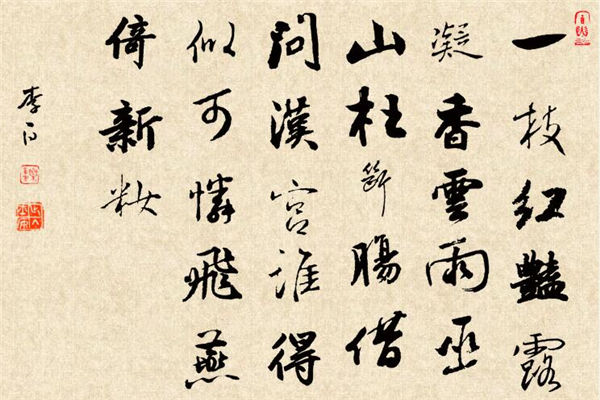 一枝紅豔露
凝香雲雨巫
山枉斷腸借
問漢宮誰得
似可憐飛燕
倚新粧
李白